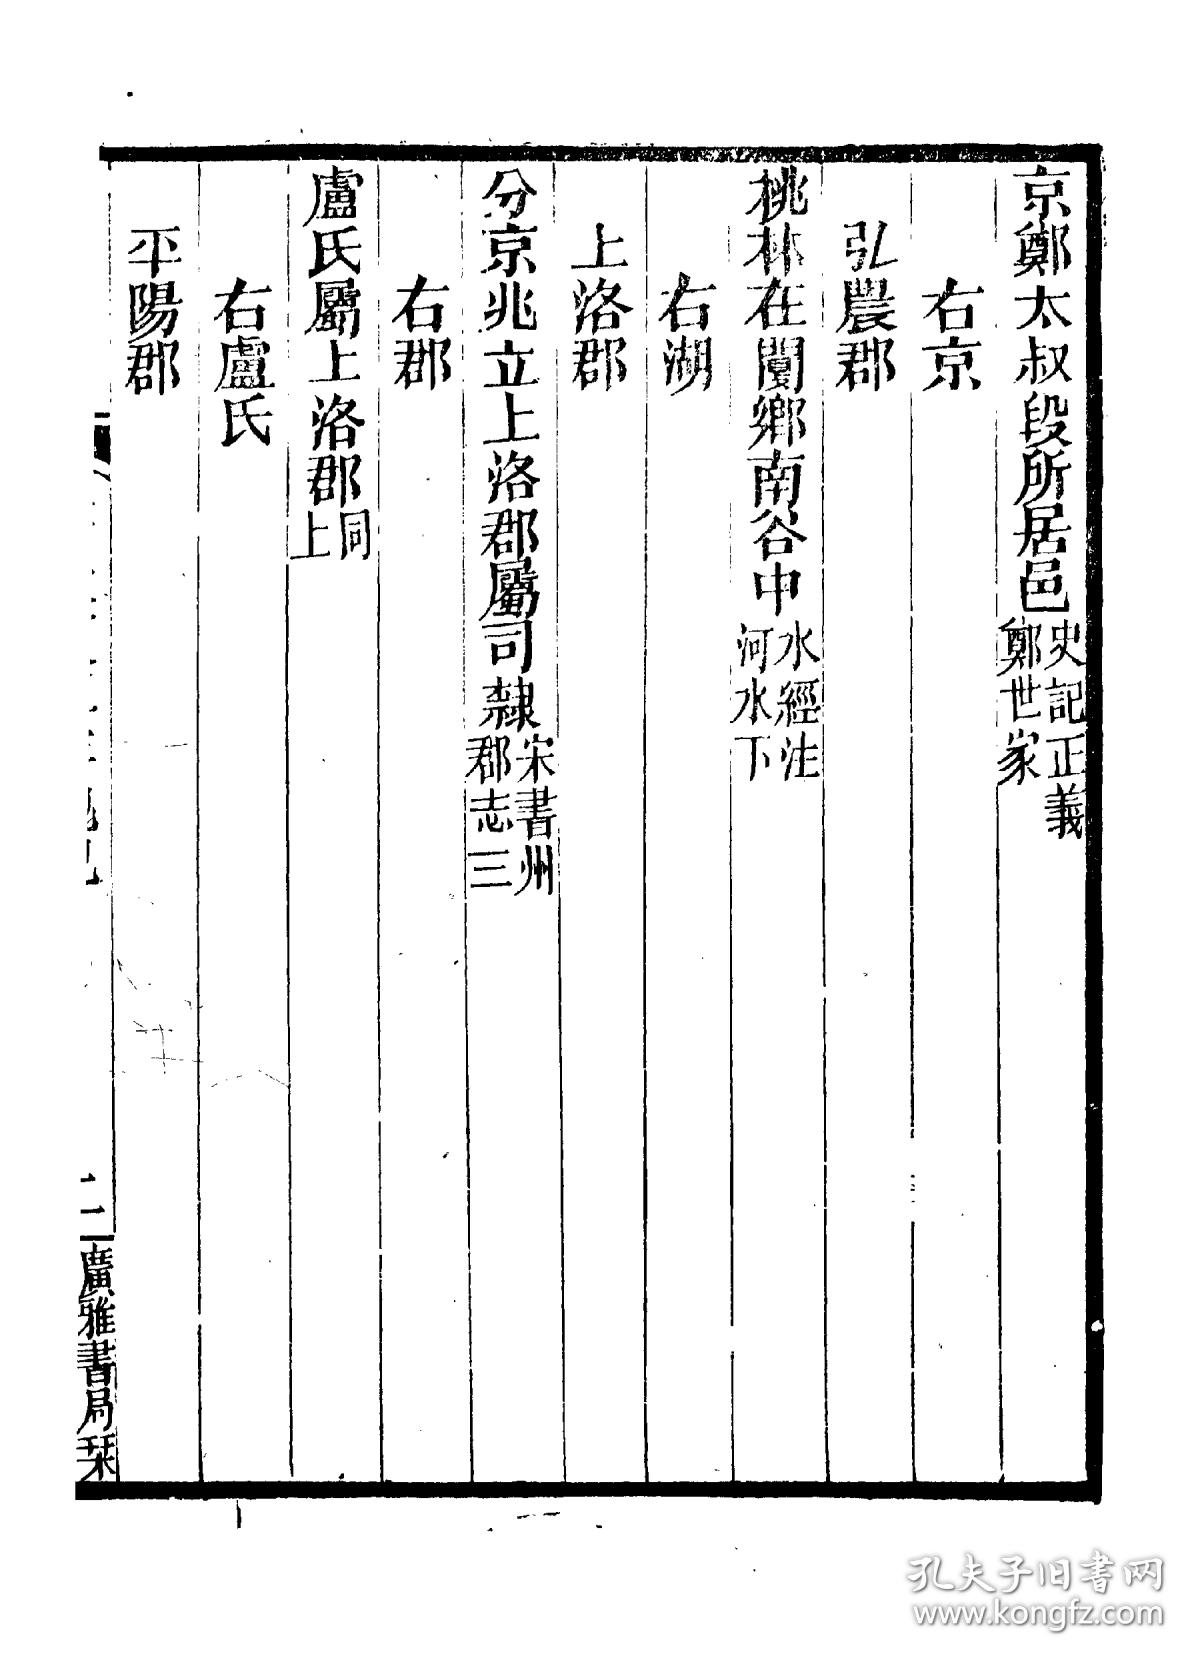 京鄭太叔段所居邑史記正義鄭世家
右京
弘農郡
桃林在閿鄉南谷中水經注河水下
右湖
上洛郡
分京兆立上洛郡屬司隸宋書州郡志三
右郡
盧氏屬上洛郡同上
右盧氏
平陽郡
二
廣雅書局栞
孔夫子旧书网
www.kongfz.com